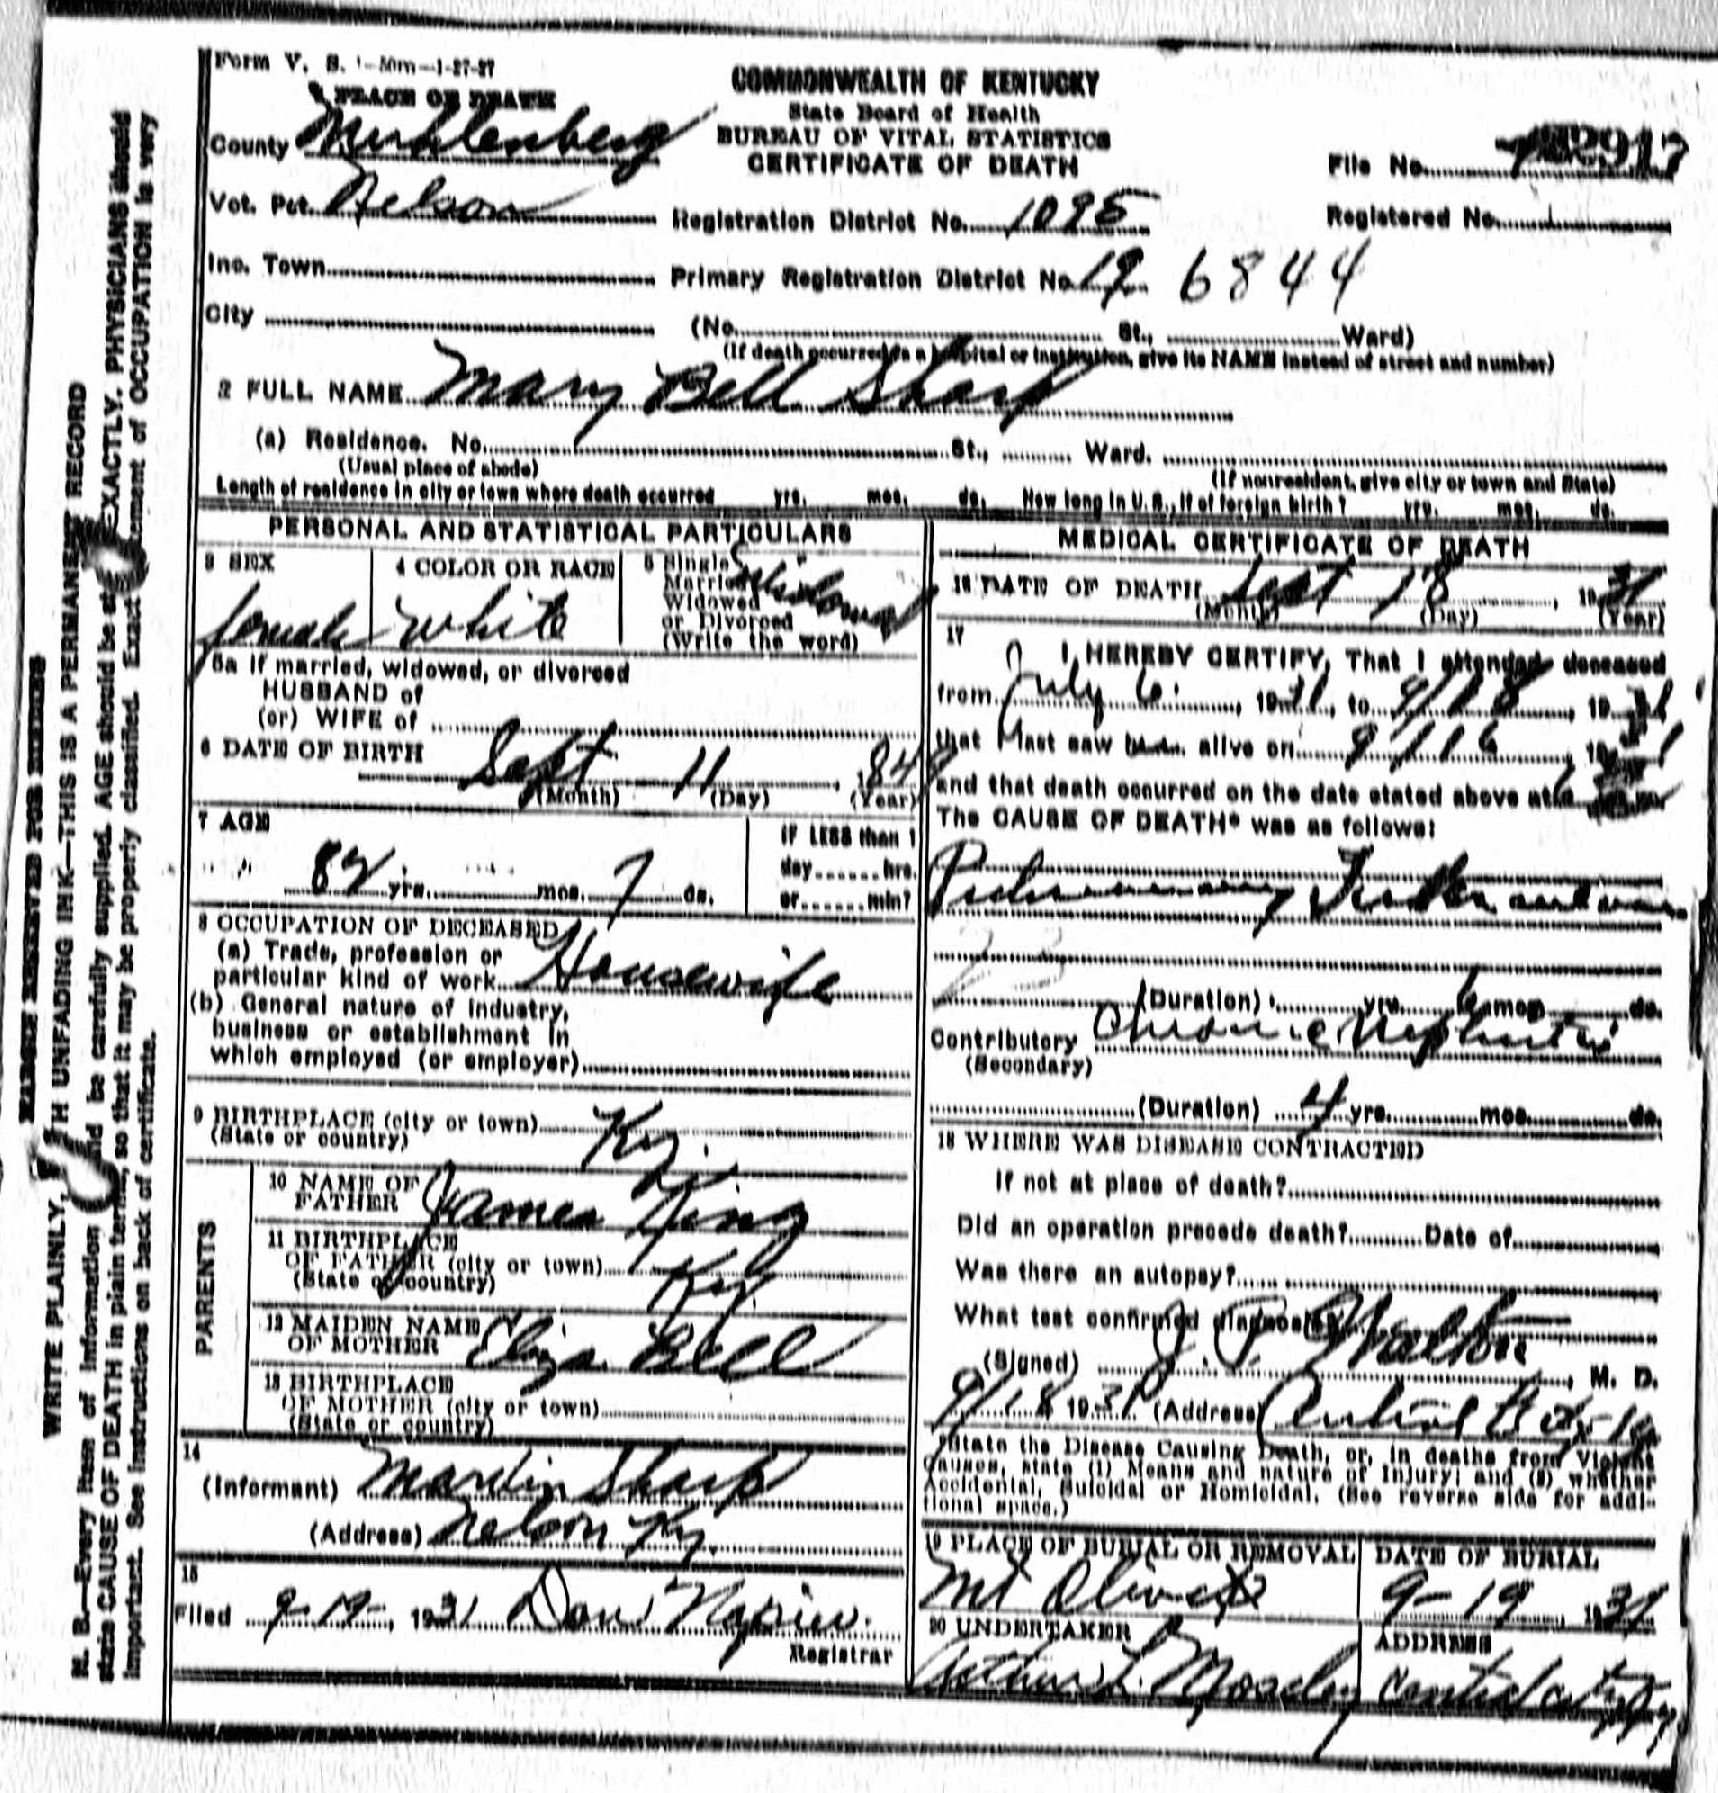 Form V. S. 1-50m-1-27-27
COMMONWEALTH OF KENTUCKY
State Board of Health
BUREAU OF VITAL STATISTICS
CERTIFICATE OF DEATH
1 PLACE OF DEATH
County Muhlenberg
Vot. Pct. Nelson
Inc. Town
City
Registration District No. 1095
Primary Registration District No. 6844
(No. St., Ward)
(If death occurred in a hospital or institution, give its NAME instead of street and number)
File No.
Registered No.
2 FULL NAME Mary Bell Sharp
(a) Residence. No. St., Ward.
(Usual place of abode) (If nonresident, give city or town and State)
Length of residence in city or town where death occurred yrs. mos. ds. How long in U. S., if of foreign birth? yrs. mos. ds.
PERSONAL AND STATISTICAL PARTICULARS
3 SEX
female
4 COLOR OR RACE
white
5 Single
Married
Widowed
or Divorced
(Write the word)
Widowed
5a If married, widowed, or divorced
HUSBAND of
(or) WIFE of
6 DATE OF BIRTH
Sept 11
(Month) (Day) (Year)
7 AGE
82 yrs. mos. 7 ds.
IF LESS than 1
day......hrs.
or......min?
8 OCCUPATION OF DECEASED
(a) Trade, profession or
particular kind of work Housewife
(b) General nature of industry,
business or establishment in
which employed (or employer)
9 BIRTHPLACE (city or town) Ky.
(State or country)
PARENTS
10 NAME OF
FATHER James King
11 BIRTHPLACE
OF FATHER (city or town)
(State or country) Ky
12 MAIDEN NAME
OF MOTHER Eliza Bell
13 BIRTHPLACE
OF MOTHER (city or town)
(State or country)
14
(Informant) Marvin Sharp
(Address) Nelson Ky.
15
Filed 9-19-, 1931 Dan Napier
Registrar
MEDICAL CERTIFICATE OF DEATH
16 DATE OF DEATH Sept 18, 1931
(Month) (Day) (Year)
17
I HEREBY CERTIFY, That I attended deceased
from July 6, 1931, to 9/18, 1931
that I last saw h alive on 9/16, 1931
and that death occurred on the date stated above at
The CAUSE OF DEATH* was as follows:
Pulmonary Tuberculosis
23
(Duration) yrs. 6 mos. ds.
Contributory Chronic Nephritis
(Secondary)
(Duration) 4 yrs. mos. ds.
18 WHERE WAS DISEASE CONTRACTED
If not at place of death?
Did an operation precede death? Date of
Was there an autopsy?
What test confirmed diagnosis?
(Signed) J. P. Walton, M. D.
9/18 1931 (Address) Central City Ky
*State the Disease Causing Death, or, in deaths from Violent
Causes, state (1) Means and nature of Injury; and (2) whether
Accidental, Suicidal or Homicidal. (See reverse side for addi-
tional space.)
19 PLACE OF BURIAL OR REMOVAL
Mt Olivet
DATE OF BURIAL
9-19, 1931
20 UNDERTAKER
Arthur L. Moseley
ADDRESS
Central City Ky
MARGIN RESERVED FOR BINDING
WRITE PLAINLY, WITH UNFADING INK—THIS IS A PERMANENT RECORD
N. B.—Every item of information should be carefully supplied. AGE should be stated EXACTLY. PHYSICIANS should
state CAUSE OF DEATH in plain terms, so that it may be properly classified. Exact statement of OCCUPATION is very
important. See instructions on back of certificate.